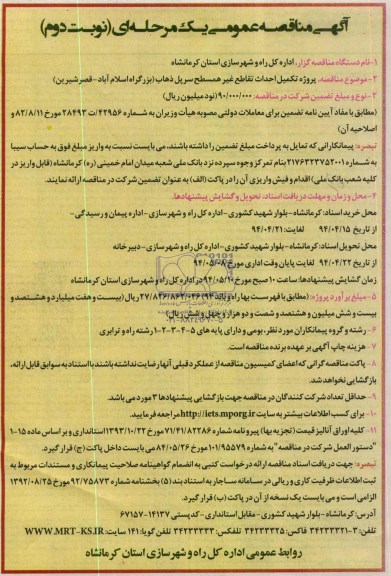 آگهی مناقصه عمومی یک مرحله ای (نوبت دوم)
۱-نام دستگاه مناقصه گزار: اداره کل راه و شهرسازی استان کرمانشاه
۲-موضوع مناقصه: پروژه تکمیل احداث تقاطع غیر همسطح سرپل ذهاب (بزرگراه اسلام آباد-قصرشیرین)
۳-نوع و مبلغ تضمین شرکت در مناقصه: ۹۰/۰۰۰/۰۰۰ (نود میلیون ریال)
(مطابق با مفاد آیین نامه تضمین برای معاملات دولتی مصوبه هیأت وزیران به شماره ۴۲۹۵۶/ت ۲۸۴۹۳ مورخ ۸۲/۸/۱۱ و
اصلاحیه آن)
تبصره: پیمانکارانی که تمایل به پرداخت مبلغ تضمین را داشته باشند، می بایست نسبت به واریز مبلغ فوق به حساب سیبا
به شماره ۲۱۷۶۳۲۳۷۵۲۰۰۱ بنام تمرکز وجوه سپرده نزد بانک ملی شعبه میدان امام خمینی (ره) کرمانشاه (قابل واریز در
کلیه شعب بانک ملی) اقدام و فیش واریزی آن را در پاکت (الف) به عنوان تضمین شرکت در مناقصه ارائه نمایند.
۴-محل و زمان و مهلت دریافت اسناد، تحویل و گشایش پیشنهادها:
محل خرید اسناد: کرمانشاه-بلوار شهید کشوری-اداره کل راه و شهرسازی-اداره پیمان و رسیدگی-
از تاریخ ۹۴/۰۴/۱۵ لغایت: ۹۴/۰۴/۲۱
محل تحویل اسناد: کرمانشاه-بلوار شهید کشوری-اداره کل راه و شهرسازی-دبیرخانه
از تاریخ ۹۴/۰۴/۲۲ لغایت پایان وقت اداری مورخ ۹۴/۰۵/۰۸
زمان گشایش پیشنهادها: ساعت ۱۰ صبح مورخ ۹۴/۰۵/۱۰ در اداره کل راه و شهرسازی استان کرمانشاه
۵-مبلغ برآورد پروژه: (مطابق با فهرست بهاء راه و باند ۹۴) ۲۷/۸۲۶/۸۶۲/۰۴۶ ریال (بیست و هفت میلیارد و هشتصد و
بیست و شش میلیون و هشتصد و شصت و دو هزار و چهل و شش ریال)
۶-رشته و گروه پیمانکاران مورد نظر: بومی و دارای پایه های ۵-۴-۳-۲-۱ رشته راه و ترابری
۷-هزینه چاپ آگهی بر عهده برنده مناقصه است.
۸-پاکت مناقصه گرانی که اعضای کمیسیون مناقصه از عملکرد قبلی آنها رضایت نداشته باشند با استناد به سوابق قابل ارائه،
بازگشایی نخواهد شد.
۹-حداقل تعداد شرکت کنندگان در مناقصه جهت بازگشایی پیشنهادها ۳ مورد می باشد.
۱۰-برای کسب اطلاعات بیشتر به سایت http://iets.mporg.ir مراجعه فرمایید.
۱۱-کلیه اوراق آنالیز قیمت (تجزیه بها) پیرو نامه شماره ۷۱/۴۱/۸۲۲۸۶ مورخ ۱۳۹۳/۱۰/۲۲ استانداری و بر اساس ماده ۱۵-۱
"دستورالعمل شرکت در مناقصه" به شماره ۱۰۱/۹۵۵۷۹ مورخ ۸۴/۰۵/۲۶ می بایست داخل پاکت (ج) قرار گیرد.
تبصره: جهت دریافت اسناد مناقصه ارائه درخواست کتبی به انضمام گواهینامه صلاحیت پیمانکاری و مستندات مربوط به
ثبت اطلاعات ظرفیت کاری و ریالی در سامانه ساجار به استناد بند (۵) بخشنامه شماره ۹۲/۷۵۸۷۳ مورخ ۱۳۹۲/۰۸/۲۵
الزامی است و می بایست یک نسخه از آن در پاکت (ب) قرار گیرد.
آدرس: کرمانشاه-بلوار شهید کشوری-مقابل استانداری-کدپستی ۱۴۱۳۷-۶۷۱۵۷
تلفن: ۳-۳۴۲۳۳۳۲۱ فاکس: ۳۴۲۳۳۳۲۵ تلفکس: ۳۴۲۳۳۳۳۳ تلفن گویا: ۱۴۱ سایت: WWW.MRT-KS.IR
روابط عمومی اداره کل راه و شهرسازی استان کرمانشاه